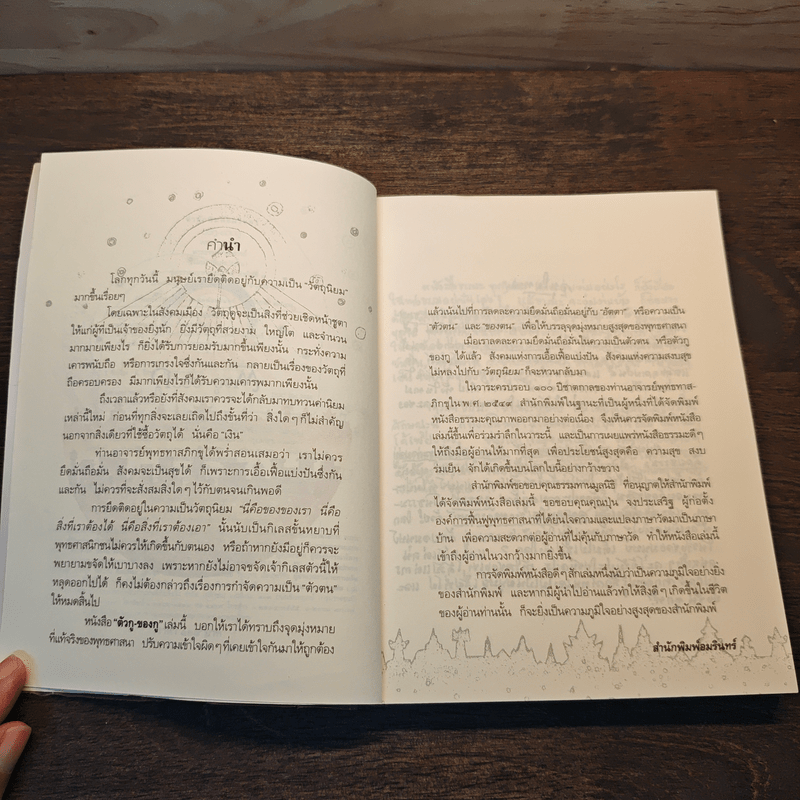 คำนำ
โลกทุกวันนี้ มนุษย์เรายึดติดอยู่กับความเป็น "วัตถุนิยม"
มากขึ้นเรื่อยๆ
โดยเฉพาะในสังคมเมือง วัตถุดูจะเป็นสิ่งที่ช่วยเชิดหน้าชูตา
ให้แก่ผู้ที่เป็นเจ้าของยิ่งนัก ยิ่งมีวัตถุที่สวยงาม ใหญ่โต และจำนวน
มากมายเพียงไร ก็ยิ่งได้รับการยอมรับมากขึ้นเพียงนั้น กระทั่งความ
เคารพนับถือ หรือการเกรงใจซึ่งกันและกัน กลายเป็นเรื่องของวัตถุที่
ถือครอบครอง มีมากเพียงไรก็ได้รับความเคารพมากเพียงนั้น
ถึงเวลาแล้วหรือยังที่สังคมเราควรจะได้กลับมาทบทวนค่านิยม
เหล่านี้ใหม่ ก่อนที่ทุกสิ่งจะเลยเถิดไปถึงขั้นที่ว่า สิ่งใดๆ ก็ไม่สำคัญ
นอกจากสิ่งเดียวที่ใช้ซื้อวัตถุได้ นั่นคือ "เงิน"
ท่านอาจารย์พุทธทาสได้พร่ำสอนเสมอว่า เราไม่ควร
ยึดมั่นถือมั่น สังคมจะเป็นสุขได้ ก็เพราะการเอื้อเฟื้อแบ่งปันซึ่งกัน
และกัน ไม่ควรที่จะสั่งสมสิ่งใดๆ ไว้กับตนจนเกินพอดี
การยึดติดอยู่ในความเป็นวัตถุนิยม "นี่คือของของเรา นี่คือ
สิ่งที่เราต้องได้ นี่คือสิ่งที่เราต้องเอา" นั้นนับเป็นกิเลสขั้นหยาบที่
พุทธศาสนิกชนไม่ควรให้เกิดขึ้นกับตนเอง หรือถ้าหากยังมีอยู่ก็ควรจะ
พยายามขจัดให้เบาบางลง เพราะหากยังไม่อาจขจัดเจ้ากิเลสตัวนี้ให้
หลุดออกไปได้ ก็คงไม่ต้องกล่าวถึงเรื่องการกำจัดความเป็น "ตัวตน"
ให้หมดสิ้นไป
หนังสือ "ตัวกู-ของกู" เล่มนี้ บอกให้เราได้ทราบถึงจุดมุ่งหมาย
ที่แท้จริงของพุทธศาสนา ปรับความเข้าใจผิดๆ ที่เคยเข้าใจกันมาให้ถูกต้อง
แล้วเน้นไปที่การลดละความยึดมั่นถือมั่นอยู่กับ "อัตตา" หรือความเป็น
"ตัวตน" และ "ของตน" เพื่อให้บรรลุจุดมุ่งหมายสูงสุดของพุทธศาสนา
เมื่อเราลดละความยึดมั่นถือมั่นในความเป็นตัวตน หรือตัวกู
ของกู ได้แล้ว สังคมแห่งการเอื้อเฟื้อแบ่งปัน สังคมแห่งความสงบสุข
ไม่หลงไปกับ "วัตถุนิยม" ก็จะหวนกลับมา
ในวาระครบรอบ ๑๐๐ ปีชาตกาลของท่านอาจารย์พุทธทาส-
ภิกขุใน พ.ศ. ๒๕๔๙ สำนักพิมพ์ในฐานะที่เป็นผู้หนึ่งที่ได้จัดพิมพ์
หนังสือธรรมะคุณภาพออกมาอย่างต่อเนื่อง จึงเห็นควรจัดพิมพ์หนังสือ
เล่มนี้ขึ้นเพื่อร่วมรำลึกในวาระนี้ และเป็นการเผยแพร่หนังสือธรรมะดีๆ
ให้ถึงมือผู้อ่านให้มากที่สุด เพื่อประโยชน์สูงสุดคือ ความสุข สงบ
ร่มเย็น จักได้เกิดขึ้นบนโลกใบนี้อย่างกว้างขวาง
สำนักพิมพ์ขอขอบคุณธรรมทานมูลนิธิ ที่อนุญาตให้สำนักพิมพ์
ได้จัดพิมพ์หนังสือเล่มนี้ ขอขอบคุณคุณปุ่น จงประเสริฐ ผู้ก่อตั้ง
องค์การฟื้นฟูพุทธศาสนาที่ได้ย่นใจความและแปลงภาษาวัดมาเป็นภาษา
บ้าน เพื่อความสะดวกต่อผู้อ่านที่ไม่คุ้นกับภาษาวัด ทำให้หนังสือเล่มนี้
เข้าถึงผู้อ่านในวงกว้างมากยิ่งขึ้น
การจัดพิมพ์หนังสือดีๆ สักเล่มหนึ่งนับว่าเป็นความภูมิใจอย่างยิ่ง
ของสำนักพิมพ์ และหากมีผู้นำไปอ่านแล้วทำให้สิ่งดีๆ เกิดขึ้นในชีวิต
ของผู้อ่านท่านนั้น ก็จะยิ่งเป็นความภูมิใจอย่างสูงสุดของสำนักพิมพ์
สำนักพิมพ์อมรินทร์